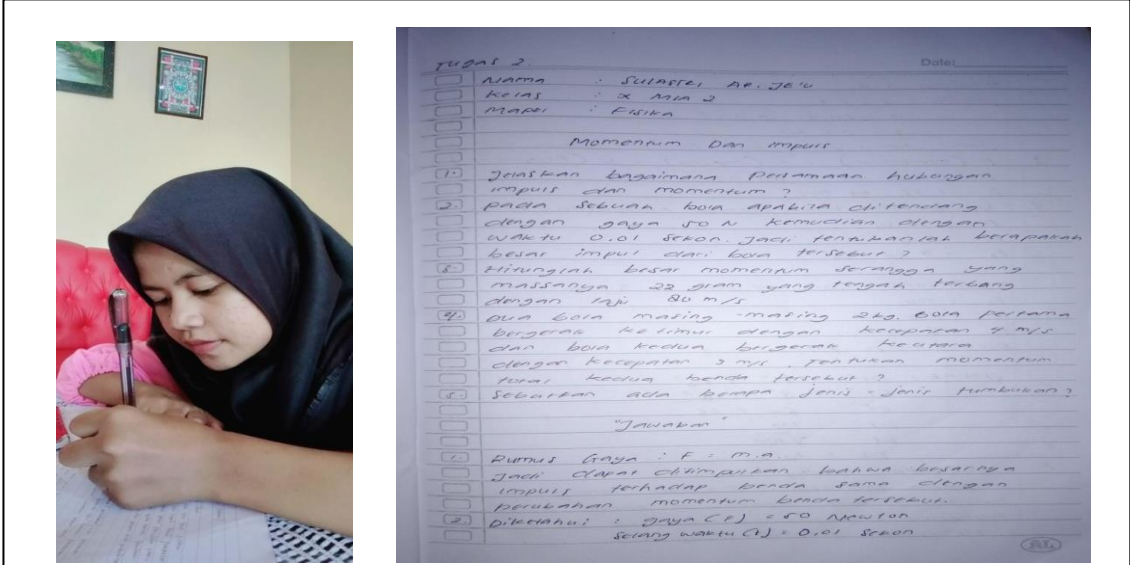 Tugas 2.
Date:
Nama : Sulastri Ap. Je'u
Kelas : X MIA 2
Mapel : Fisika
Momentum Dan impuls
1. Jelaskan bagaimana persamaan hubungan
impuls dan momentum ?
2. pada sebuah bola apabila ditendang
dengan gaya 50 N kemudian dengan
waktu 0.01 sekon. Jadi tentukanlah berapakah
besar impul dari bola tersebut ?
3. Hitunglah besar momentum serangga yang
massanya 22 gram yang tengah terbang
dengan laju 80 m/s
4. Dua bola masing-masing 2kg. bola pertama
bergerak ke timur dengan kecepatan 4 m/s
dan bola kedua bergerak keutara
dengan kecepatan 3 m/s. Tentukan momentum
total kedua benda tersebut ?
5. Sebutkan ada berapa jenis-jenis tumbukan ?
"Jawaban"
1. Rumus Gaya : F = m.a.
Jadi dapat disimpulkan bahwa besarnya
impuls terhadap benda sama dengan
perubahan momentum benda tersebut.
2. Diketahui : gaya (F) = 50 Newton
Selang waktu (t) = 0.01 sekon
AL